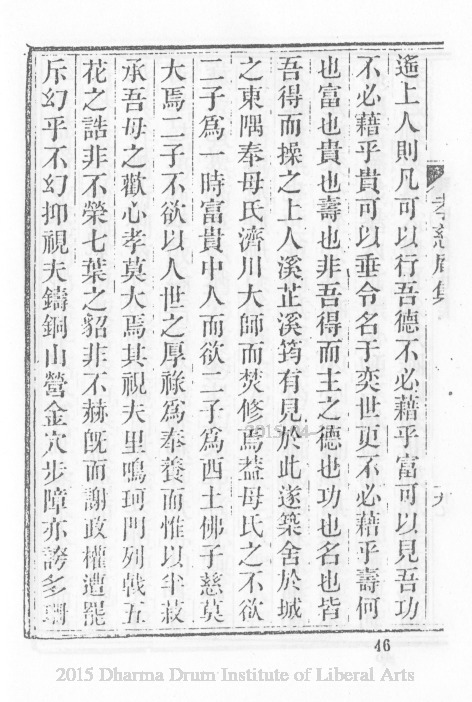 遙上人則凡可以行吾德不必藉乎富可以見吾功
不必藉乎貴可以垂令名于奕世更不必藉乎壽何
也富也貴也壽也非吾得而主之德也功也名也皆
吾得而操之上人溪芷溪筠有見於此遂築舍於城
之東隅奉母氏濟川大師而焚修焉蓋母氏之不欲
二子爲一時富貴中人而欲二子爲西土佛子慈莫
大焉二子不欲以人世之厚祿爲奉養而惟以半菽
承吾母之歡心孝莫大焉其視夫里鳴珂門列戟五
花之誥非不榮七葉之貂非不赫旣而謝政權遭罷
斥幻乎不幻抑視夫鑄銅山營金穴步障亦誇多珊
孝慈庵集
九
46
2015 Dharma Drum Institute of Liberal Arts